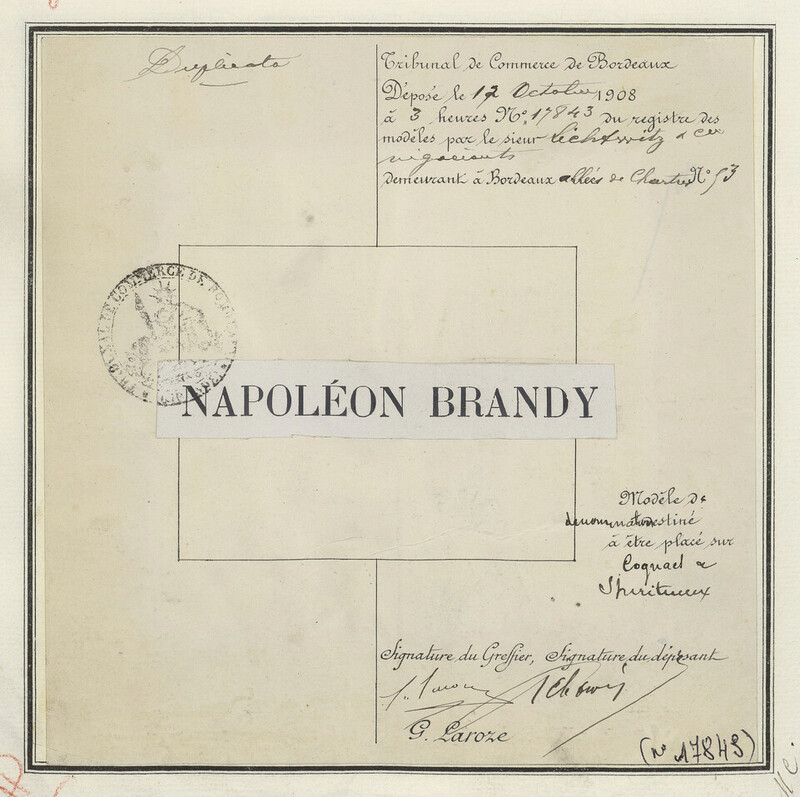 Duplicata
Tribunal de Commerce de Bordeaux
Déposé le 12 Octobre 1908
à 3 heures N° 17843 du registre des
modèles par le sieur Lichtwitz & Cie
négociants
demeurant à Bordeaux allées de Chartres N° 53
TRIBUNAL DE COMMERCE DE BORDEAUX
NAPOLÉON BRANDY
Modèle de
denomination destiné
à être placé sur
Cognacs &
Spiritueux
Signature du Greffier, Signature du déposant
G. Laroze
(N° 17843)